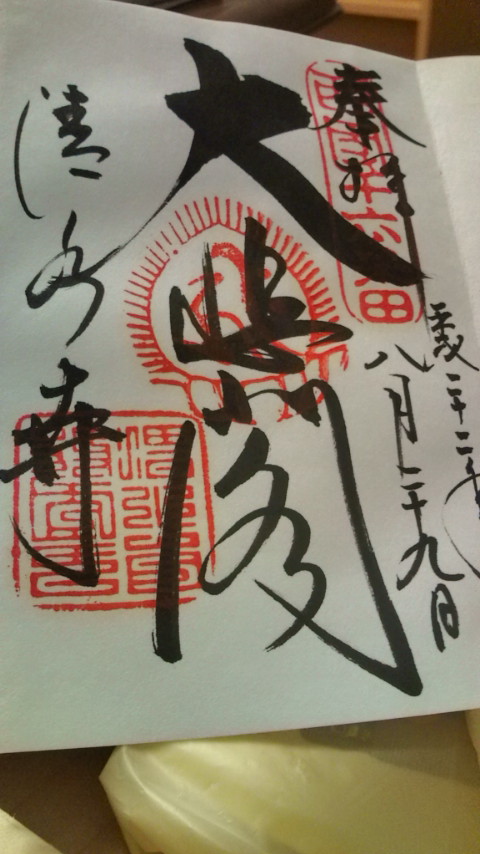 奉拝
西国十六番
平成二十二年
八月二十九日
大悲閣
清水寺